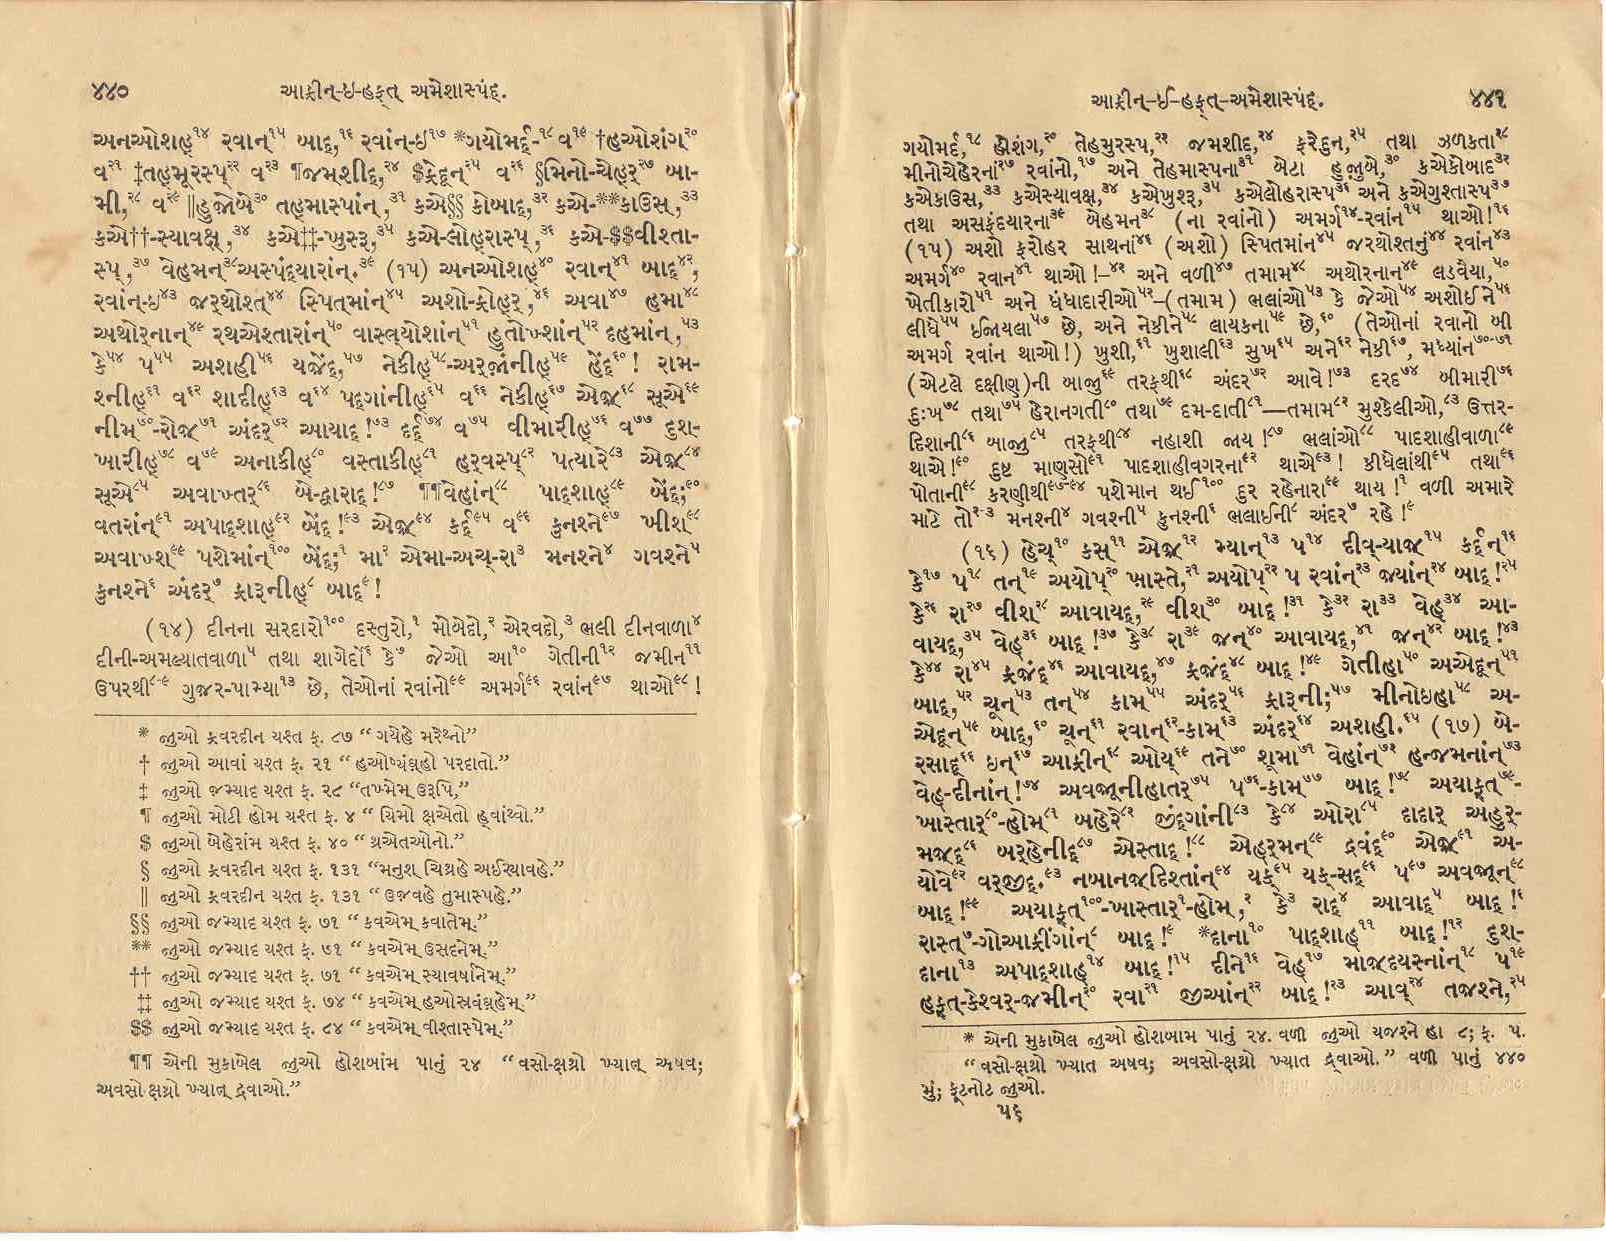 ૪૪૦ આફ્રીન્-ઇ-હફ્ત્ અમેશાસ્પંદ્.
અનઓશહ્૧૪ રવાન્૧૫ બાદ્,૧૬ રવાંન-ઇ૧૭ *ગયોમર્દ્-૧૮ વ૧૯ †હઓશંગ૨૦
વ૨૧ ‡તહ્મૂરસ્પ્૨૨ વ૨૩ ¶જમ્શીદ્,૨૪ $ફ્રેદૂન્૨૫ વ૨૬ §મિનો-ચૈહર્૨૭ બા-
મી,૨૮ વ૨૯ ||હુજોબે૩૦ તહ્માસ્પાંન્,૩૧ કએ§§ કોબાદ્,૩૨ કએ-**કાઉસ્,૩૩
કએ††-સ્યાવક્ષ્,૩૪ કએ‡‡-ખુસરૂ,૩૫ કએ-લોહ્રાસ્પ્,૩૬ કએ-$$વીશ્તા-
સ્પ્,૩૭ વેહુમન્૩૮અસ્પંદ્યારાંન્.૩૯ (૧૫) અનઓશહ્૪૦ રવાન્૪૧ બાદ્૪૨,
રવાંન-ઇ૪૩ જર્થોશ્ત્૪૪ સ્પિત્માંન્૪૫ અશો-ફ્રોહર્,૪૬ અવા૪૭ હમા૪૮
અથોર્નાન્૪૯ રથએશ્તારાંન્૫૦ વાસ્ત્ર્યોશાંન્૫૧ હુતોખ્શાંન્૫૨ દહમાંન્,૫૩
કે૫૪ પ૫૫ અશહી૫૬ યજેંદ્,૫૭ નેકીહ્૫૮-અર્જાંનીહ્૫૯ હેંદ્૬૦! રામ-
શ્નીહ્૬૧ વ૬૨ શાદીહ્૬૩ વ૬૪ પદ્ગાંનીહ્૬૫ વ૬૬ નેકીહ્૬૭ એજ઼૬૮ સૂએ૬૯
નીમ્૭૦-રોજ઼૭૧ અંદર્૭૨ આયાદ્!૭૩ દર્દ્૭૪ વ૭૫ વીમારીહ્૭૬ વ૭૭ દુશ-
ખારીહ્૭૮ વ૭૯ અનાકીહ્૮૦ વસ્તાકીહ્૮૧ હર્વસ્પ્૮૨ પત્યારે૮૩ એજ઼૮૪
સૂએ૮૫ અવાખ્તર્૮૬ બે-દ્વારાદ્!૮૭ ¶¶વેહાંન્૮૮ પાદ્શાહ્૮૯ બેંદ્;૯૦
વતરાંન્૯૧ અપાદ્શાહ્૯૨ બેંદ્!૯૩ એજ઼૯૪ કર્દ્૯૫ વ૯૬ કુનશ્ને૯૭ ખીશ૯૮
અવાખ્શ્૯૯ પશેમાંન્૧૦૦ બેંદ્;૧ મા૨ એમા-અચ્-રા૩ મનશ્ને૪ ગવશ્ને૫
કુનશ્ને૬ અંદર્૭ ફ્રારૂનીહ્૮ બાદ્૯!
(૧૪) દીનના સરદારો૧૦૦ દસ્તુરો,૧ મોબેદો,૨ એરવદો,૩ ભલી દીનવાળા૪
દીની-અમલ્યાતવાળા૫ તથા શાગેર્દો૬ કે૭ જેઓ આ૧૦ ગેતીની૧૨ જમીન૧૧
ઉપરથી૮-૯ ગુજર-પામ્યા૧૩ છે, તેઓનાં રવાંનો૯૯ અમર્ગ૯૬ રવાંન૯૭ થાઓ૯૮!
* જુઓ ફ્રવરદીન યશ્ત ફ. ૮૭ “ગયેહે મરેથ્નો”
† જુઓ આવાં યશ્ત ફ. ૨૧ “હઓષ્યંઘ્હો પરદાતો.”
‡ જુઓ જમ્યાદ યશ્ત ફ. ૨૮ “તખ્મેમ્ ઉરૂપિ,”
¶ જુઓ મોટી હોમ યશ્ત ફ. ૪ “યિમો ક્ષએતો હ્વાંથ્વો.”
$ જુઓ બેહેરાંમ યશ્ત ફ. ૪૦ “થ્રએતઓનો.”
§ જુઓ ફ્રવરદીન યશ્ત ફ. ૧૩૧ “મનુશ્ ચિથ્રહે અઇર્યાવહે.”
|| જુઓ ફ્રવરદીન યશ્ત ફ. ૧૩૧ “ઉજ઼વહે તુમાસ્પહે.”
§§ જુઓ જમ્યાદ યશ્ત ફ. ૭૧ “કવએમ્ કવાતેમ્.”
** જુઓ જમ્યાદ યશ્ત ફ. ૭૧ “કવએમ્ ઉસદનેમ્.”
†† જુઓ જમ્યાદ યશ્ત ફ. ૭૧ “કવએમ્ સ્યાવર્ષાનેમ્.”
‡‡ જુઓ જમ્યાદ યશ્ત ફ. ૭૪ “કવએમ્ હઓસ્રવંઘ્હેમ્.”
$$ જુઓ જમ્યાદ યશ્ત ફ. ૮૪ “કવએમ્ વીશ્તાસ્પેમ્.”
¶¶ એની મુકાબેલ જુઓ હોશબાંમ પાનું ૨૪ “વસો-ક્ષથ્રો ખ્યાત્ અષવ;
અવસો-ક્ષથ્રો ખ્યાત્ દ્રવાઓ.”
આફ્રીન્-ઈ-હફ્ત્-અમેશાસ્પંદ્. ૪૪૧
ગયોમર્દ,૧૮ હોશંગ,૨૦ તેહમુરસ્પ,૨૨ જમશીદ,૨૪ ફરેદુન,૨૫ તથા ઝળકતા૨૮
મીનોચેહેરનાં૨૭ રવાંનો,૧૭ અને તેહમાસ્પના૩૧ બેટા હુજોબે,૩૦ કએકોબાદ૩૨
કએકાઉસ,૩૩ કએસ્યાવક્ષ,૩૪ કએખુશરૂ,૩૫ કએલોહરાસ્પ૩૬ અને કએગુશ્તાસ્પ૩૭
તથા અસફંદયારના૩૯ બેહમન૩૮ (ના રવાંનો) અમર્ગ૧૪-રવાંન૧૫ થાઓ!૧૬
(૧૫) અશો ફરોહર સાથનાં૪૬ (અશો) સ્પિતમાંન૪૫ જરથોશ્તનું૪૪ રવાંન૪૩
અમર્ગ૪૦ રવાન૪૧ થાઓ!-૪૨ અને વળી૪૭ તમામ૪૮ અથોરનાન૪૯ લડવૈયા,૫૦
ખેતીકારો૫૧ અને ધંધાદારીઓ૫૨-(તમામ) ભલાંઓ૫૩ કે જેઓ૫૪ અશોઈને૫૬
લીધે૫૫ ઈજાયલા૫૭ છે, અને નેકીને૫૮ લાયકના૫૯ છે,૬૦ (તેઓનાં રવાનો બી
અમર્ગ રવાંન થાઓ!) ખુશી,૬૧ ખુશાલી૬૩ સુખ૬૫ અને૬૨ નેકી૬૭, મધ્યાંન૭૦-૭૧
(એટલે દક્ષીણ)ની બાજુ૬૯ તરફથી૬૮ અંદર૭૨ આવે!૭૩ દરદ૭૪ બીમારી૭૬
દુઃખ૭૮ તથા૭૫ હેરાનગતી૮૦ તથા૭૯ દમ-દાતી૮૧—તમામ૮૨ મુશ્કેલીઓ,૮૩ ઉત્તર-
દિશાની૮૬ બાજુ૮૫ તરફથી૮૪ નહાશી જાય!૮૭ ભલાંઓ૮૮ પાદશાહીવાળા૮૯
થાએ!૯૦ દુષ્ટ માણસો૯૧ પાદશાહીવગરના૯૨ થાએ૯૩! કીધેલાંથી૯૫ તથા૯૬
પોતાની૯૮ કરણીથી૯૭-૯૪ પશેમાન થઈ૧૦૦ દુર રહેનારા૯૯ થાય!૧ વળી અમારે
માટે તો૨-૩ મનશ્ની૪ ગવશ્ની૫ કુનશ્ની૬ ભલાઈની૮ અંદર૭ રહે!૯
(૧૬) હેચ્૧૦ કસ્૧૧ એજ઼૧૨ મ્યાન્૧૩ પ૧૪ દીવ્-યાજ઼૧૫ કર્દ્દન્૧૬
કે૧૭ પ૧૮ તન્૧૯ અયોપ્૨૦ ખ઼ાસ્તે,૨૧ અયોપ્૨૨ પ રવાંન્૨૩ જ઼યાંન્૨૪ બાદ્!૨૫
કે૨૬ રા૨૭ વીશ્૨૮ આવાયદ્,૨૯ વીશ્૩૦ બાદ્!૩૧ કે૩૨ રા૩૩ વેહ્૩૪ આ-
વાયદ્,૩૫ વેહ્૩૬ બાદ્!૩૭ કે૩૮ રા૩૯ જ઼ન્૪૦ આવાયદ્,૪૧ જ઼ન્૪૨ બાદ્!૪૩
કે૪૪ રા૪૫ ફ્રજ઼ંદ્૪૬ આવાયદ્,૪૭ ફ્રજ઼ંદ્૪૮ બાદ્!૪૯ ગેતીહા૫૦ અએદૂન્૫૧
બાદ્,૫૨ ચૂન્૫૩ તન્૫૪ કામ૫૫ અંદર્૫૬ ફ્રારૂની;૫૭ મીનોઇહા૫૮ અ-
એદૂન્૫૯ બાદ્,૬૦ ચૂન્૬૧ રવાન્૬૨-કામ્૬૩ અંદર્૬૪ અશહી.૬૫ (૧૭) બે-
રસાદ્૬૬ ઇન્૬૭ આફ્રીન્૬૮ ઓય્૬૯ તને૭૦ શૂમા૭૧ વેહાંન્૭૨ હન્જમનાંન્૭૩
વેહ્-દીનાંન્!૭૪ અવજ઼ૂનીહાતર્૭૫ પ૭૬-કામ્૭૭ બાદ્!૭૮ અયાફ્ત્૭૯-
ખાસ્તાર્૮૦-હોમ્૮૧ બહેરે૮૨ જીંદ્ગાંની૮૩ કે૮૪ ઓરા૮૫ દાદાર્ અહુર્-
મજ઼દ્૮૬ બર્હેનીદ્૮૭ એસ્તાદ્!૮૮ એહર્મન્૮૯ દ્રવંદ્૯૦ એજ઼૯૧ અ-
યોવે૯૨ વર્જીદ્.૯૩ નખાનજદિશ્તાંન્૯૪ યક્૯૫ યક્-સદ્૯૬ પ૯૭ અવજ઼ૂન્૯૮
બાદ્!૯૯ અયાફ્ત્૧૦૦-ખાસ્તાર્૧-હોમ્,૨ કે૩ રાદ્૪ આવાદ્૫ બાદ્!૬
રાસ્ત્૭-ગોઆફ્રીંગાંન્૮ બાદ્!૯ *દાના૧૦ પાદ્શાહ્૧૧ બાદ્!૧૨ દુશ-
દાના૧૩ અપાદ્શાહ્૧૪ બાદ્!૧૫ દીને૧૬ વેહ્૧૭ માજ઼દયસ્નાંન્૧૮ પ૧૯
હફ્ત્-કેશ્વર્-જ઼મીન્૨૦ રવા૨૧ જીઆંન્૨૨ બાદ્!૨૩ આવ્૨૪ તજ઼શ્ને,૨૫
* એની મુકાબેલ જુઓ હોશબામ પાનું ૨૪. વળી જુઓ યજશ્ને હા ૮; ફ. ૫.
“વસો-ક્ષથ્રો ખ્યાત અષવ; અવસો-ક્ષથ્રો ખ્યાત દ્રવાઓ.” વળી પાનું ૪૪૦
મું; ફૂટનોટ જુઓ.
૫૬